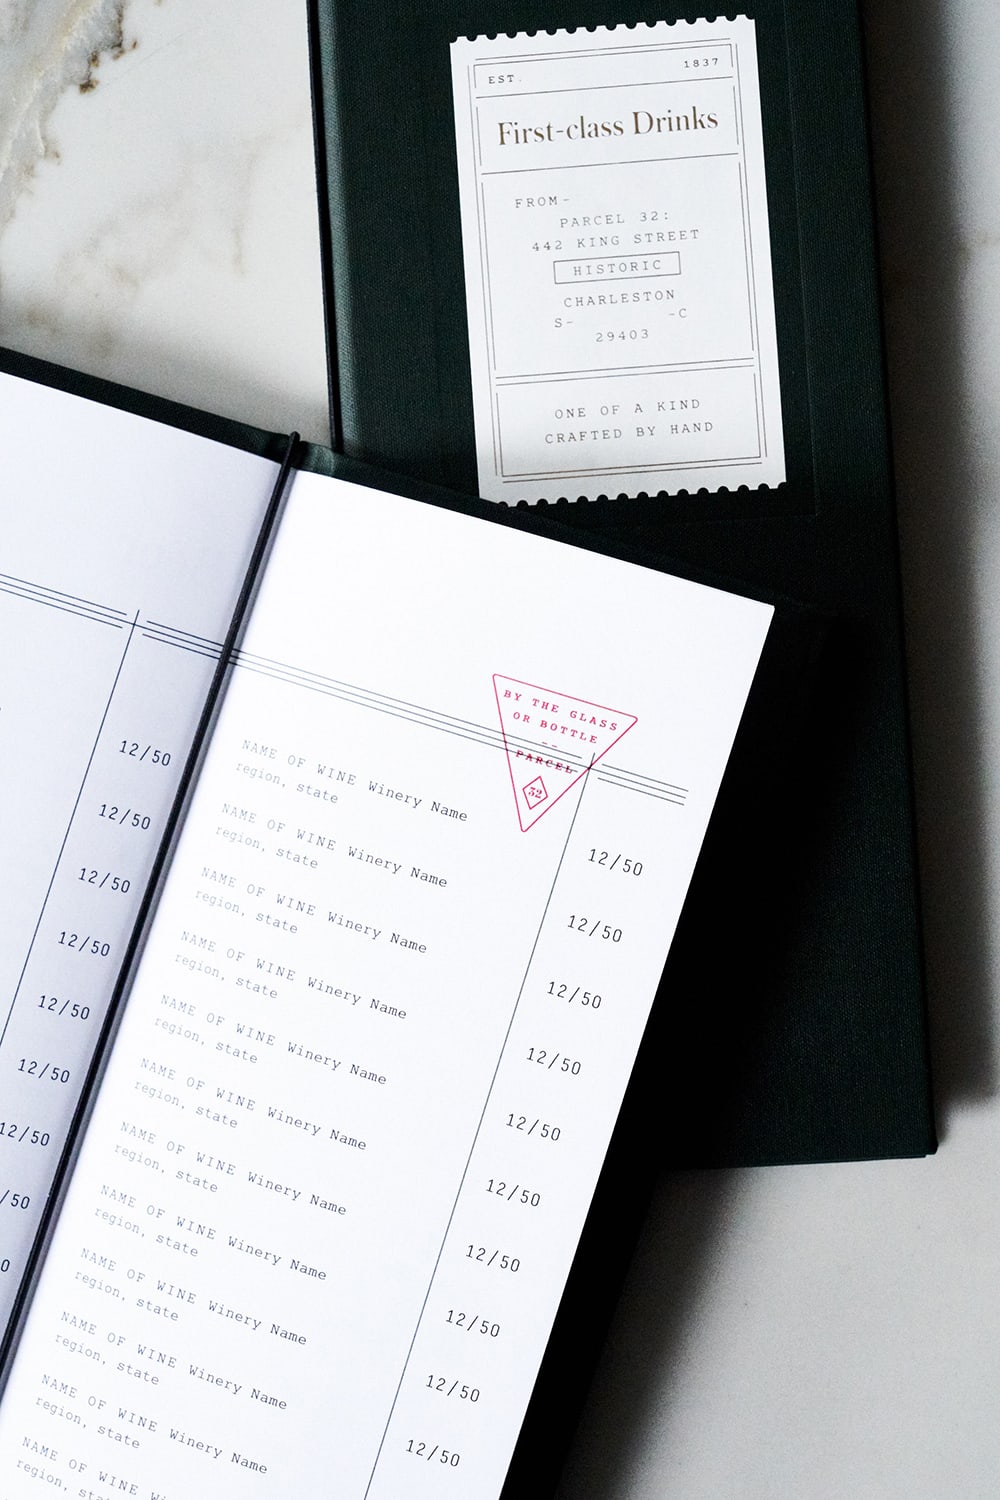 EST. 1837
First-class Drinks
FROM-
PARCEL 32:
442 KING STREET
HISTORIC
CHARLESTON
S- -C
29403
ONE OF A KIND
CRAFTED BY HAND
12/50
12/50
12/50
12/50
12/50
12/50
12/50
/50
0
BY THE GLASS
OR BOTTLE
--
PARCEL
32
NAME OF WINE Winery Name 12/50
region, state
NAME OF WINE Winery Name 12/50
region, state
NAME OF WINE Winery Name 12/50
region, state
NAME OF WINE Winery Name 12/50
region, state
NAME OF WINE Winery Name 12/50
region, state
NAME OF WINE Winery Name 12/50
region, state
NAME OF WINE Winery Name 12/50
region, state
NAME OF WINE Winery Name 12/50
region, state
NAME OF WINE Winery Name 12/50
region, state
NAME OF WINE Winery Name 12/50
region, state
NAME OF WINE Winery Name
region, state
NAME OF WINE
region, state